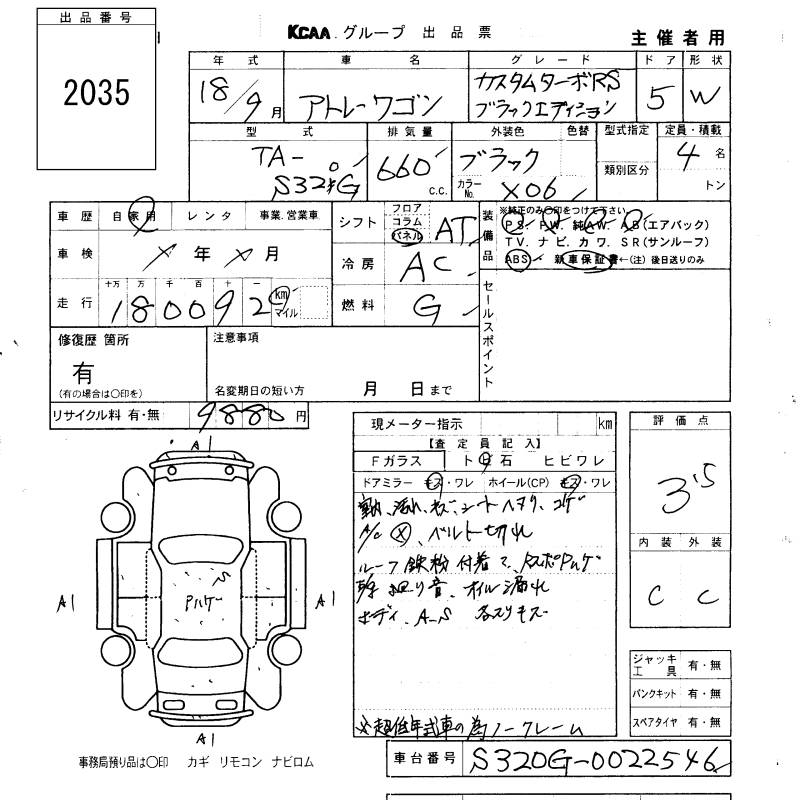 出品番号
2035
KCAA グループ 出品票
主催者用
年式 車名 グレード ドア 形状
18/9月 アトレーワゴン カスタムターボRS ブラックエディション 5 W
型式 排気量 外装色 色替 型式指定 定員・積載
TA- 660 c.c. ブラック 類別区分 4名
カラーNo. X06 トン
車歴 自家用 レンタ 事業.営業車
シフト フロア コラム パネル AT
装備品 ※純正のみ○印をつけて下さい。
PS. PW. 純AW. AB(エアバック)
TV. ナビ. カワ. SR(サンルーフ)
ABS 新車保証書←(注)後日送りのみ
車検 年 月
冷房 AC
走行 十万 万 千 百 十 一 180092 km マイル
燃料 G
セールスポイント
修復歴 箇所
有
(有の場合は○印を)
注意事項
名変期日の短い方 月 日まで
リサイクル料 有・無 9880円
現メーター指示 km
【査定員記入】
Fガラス ト日石 ヒビワレ
ドアミラー キズ・ワレ ホイール(CP) キズ・ワレ
シートヘタリ、コゲ
A/C ベルト切れ
ルーフ鉄粉付着
廻り音、オイル漏れ
ボディ、A-S 各スリキズ
※超低年式車の為ノークレーム
評価点
3.5
内装 外装
C C
A1
A1
S
Pハゲ
A1
A1
ジャッキ工具 有・無
パンクキット 有・無
スペアタイヤ 有・無
事務局預り品は○印 カギ リモコン ナビロム
車台番号 S320G-0022546